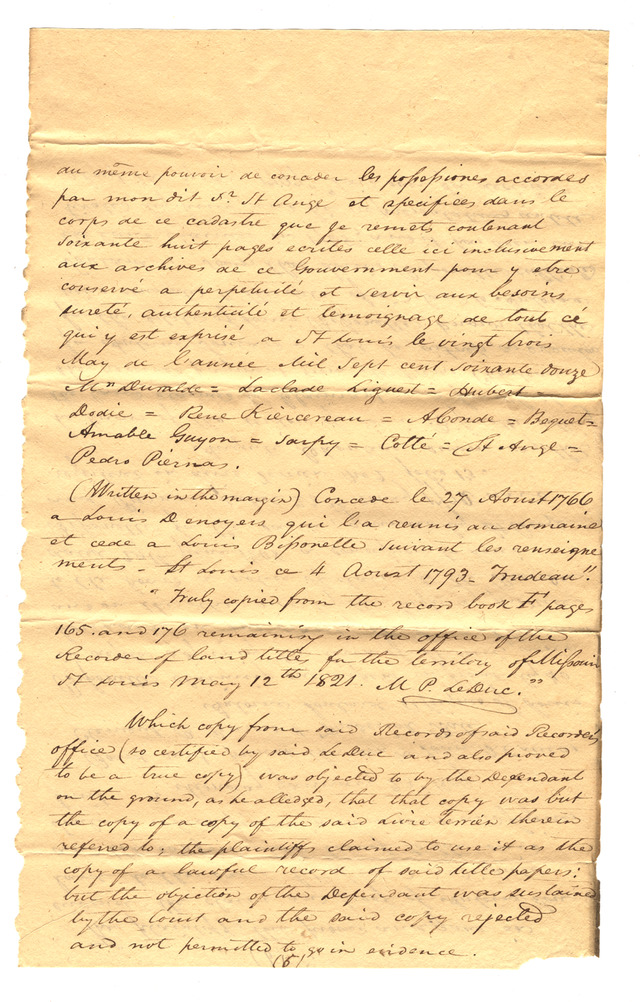 du même pouvoir de conceder les possessiones accordes
par mon dit Sr. St Ange et specifices dans le
corps de ce cadastre que je remets contenant
soixante huit pages ecrites celle ici inclusivement
aux archives de ce Gouvernment pour y etre
conservé a perpetuité et servir aux besoins
sureté, authenticité et temoignage de tout cé
qui y est exprisé a St Louis le vingt trois
May de l'année Mil Sept cent soixante douze
Mn Duralde = Laclede Liguest = Hubert =
Dodie = Rene Kiercereau = A Conde = Bequet =
Amable Guyon = Sarpy = Cotté = St Ange =
Pedro Piernas.
(Written in the margin) Concede le 27 Aoust 1766
a Louis Denoyers qui l'a reunis au domaine
et cede a Louis Bissonette suivant les renseigne
ments - St Louis ce 4 Aoust 1793 - Trudeau".
"Truly copied from the record book F pages
165. and 176 remaining in the office of the
Recorder of land titles for the territory of Missouri
St Louis May 12th 1821. M P. LeDuc."
Which copy from said Records of said Recorders
office (so certified by said LeDuc and also proved
to be a true copy) was objected to by the Defendant
on the ground, as he alledged, that that copy was but
the copy of a copy of the said Livre Terrien therein
referred to; the plaintiffs claimed to use it as the
copy of a lawful record of said title papers:
but the objection of the Defendant was sustained
by the court and the said copy rejected
and not permitted to go in evidence.
(5)